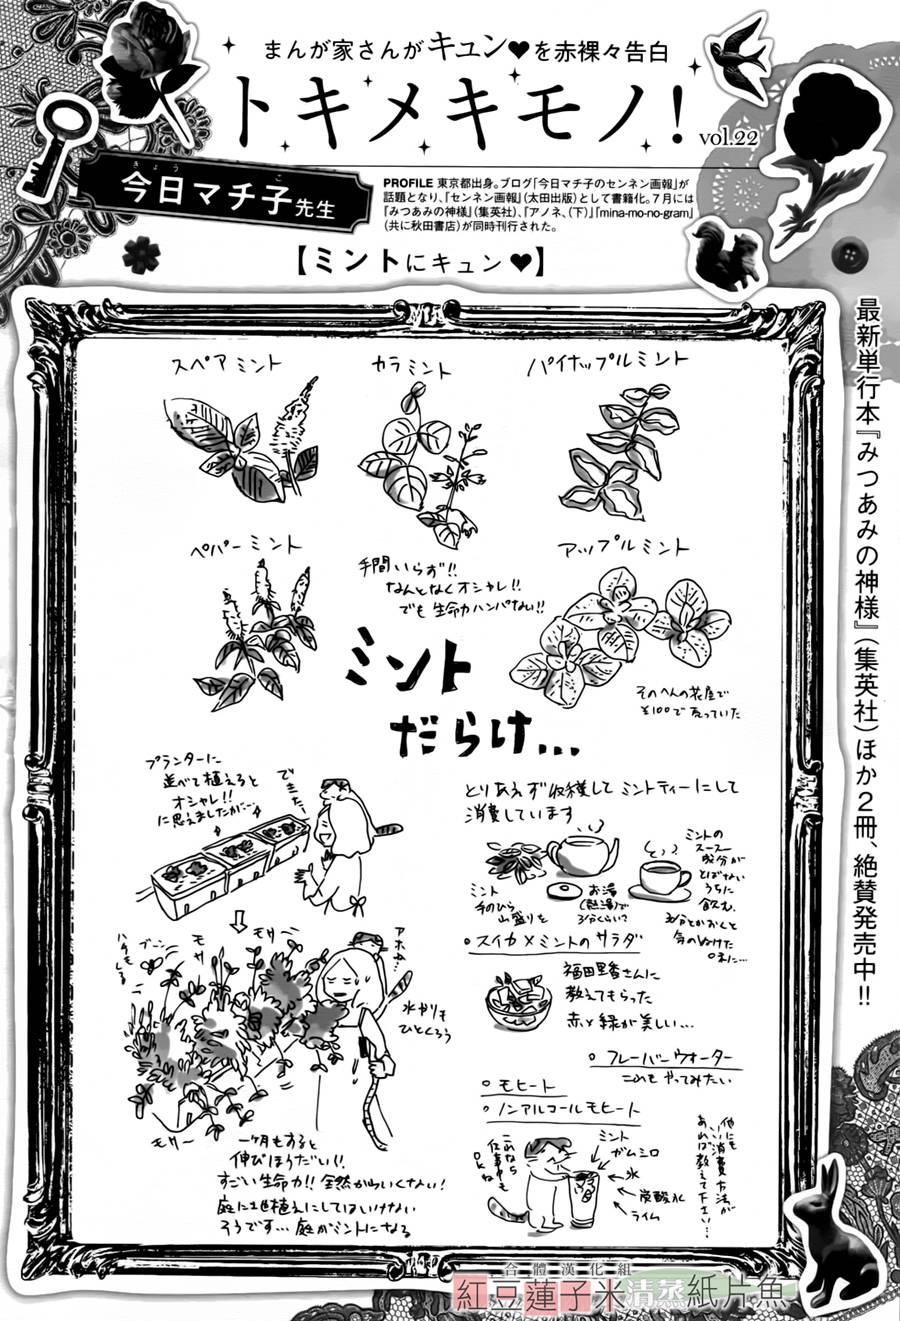 まんが家さんがキュン♥を赤裸々告白
トキメキモノ!
vol.22
きょう こ
今日マチ子先生
PROFILE 東京都出身。ブログ「今日マチ子のセンネン画報」が
話題となり、「センネン画報」(太田出版)として書籍化。7月には
『みつあみの神様』(集英社)、「アノネ、(下)」「mina-mo-no-gram」
(共に秋田書店)が同時刊行された。
【ミントにキュン♥】
最新単行本『みつあみの神様』(集英社)ほか2冊、絶賛発売中!!
スペアミント
カラミント
パイナップルミント
ペパーミント
手間いらず!!
なんとなくオシャレ!!
でも生命力ハンパない!!
アップルミント
そのへんの花屋で
¥100で売っていた
ミント
だらけ…
プランターに
並べて植えると
オシャレ!!
に思えましたが…
できた、
モサ〜
モサ
ブーン
ハチもくる
アホか…
水やりも
ひとくろう
モサ〜
一ヶ月もすると
伸びほうだい!!
すごい生命力!! 全然かわいくない!
庭に地植えにしてはいけない
そうです…庭がミントになる
とりあえず収穫してミントティーにして
消費しています
ミント
手のひら
山盛りを
お湯
(熱湯)で
3分くらい?
ミントの
スース―
成分が
とばない
うちに
飲む。
○スイカ×ミントのサラダ
福田里香さんに
教えてもらった
赤と緑が美しい…
○フレーバーウォーター
これもやってみたい
○モヒート
○ノンアルコールモヒート
これなら
仕事中も
OKね
ミント
ガムシロ
氷
炭酸水
ライム
他にも
いい消費方法が
あれば教えて下さい…
合體漢化組
紅豆蓮子米清蒸紙片魚